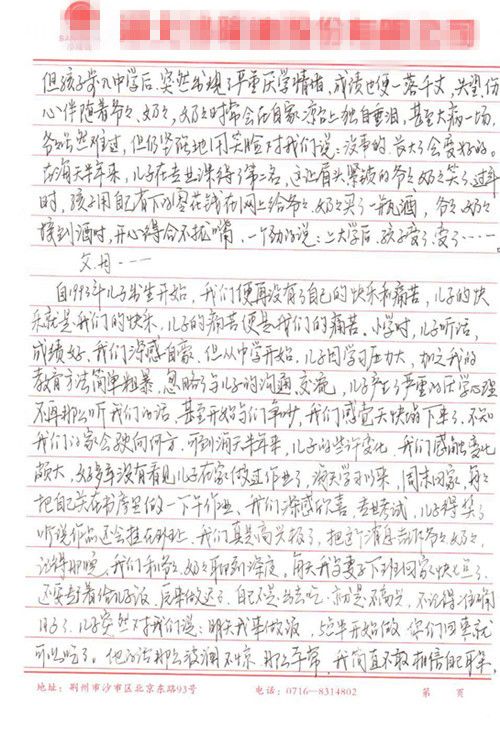 但孩子步入中学后,突然出现了严重厌学情绪,成绩也便一落千丈,失望伤
心伴随着爷爷、奶奶,奶奶时常会在自家凉台上独自垂泪,甚至大病一场,
爷爷虽然难过,但仍坚强地用笑脸对我们说:没事的,长大了会变好的。
在海天半年来,儿子在专业课得了第二名,这让眉头紧皱的爷爷奶奶笑了,过年
时,孩子用自己省下的零花钱在网上给爷爷、奶奶买了一瓶酒,爷爷、奶奶
接到酒时,开心得合不拢嘴,一个劲的说:上大学后,孩子变了,变了……
父母……
自1993年儿子出生开始,我们便再没有了自己的快乐和痛苦,儿子的快
乐就是我们的快乐,儿子的痛苦便是我们的痛苦。小学时,儿子听话,
成绩好,我们深感自豪,但从中学开始,儿子因学习压力大,加之我的
教育方法简单粗暴,忽略了与儿子的沟通、交流,儿子产生了严重的厌学心理
不再那么听我们的话,甚至开始与我们争吵,我们感觉天快塌下来了,不知
我们的家会驶向何方。可到海天半年来,儿子的些许变化,我们感触变化
颇大,好多年没有看见儿子在家做过作业了,海天学习以来,周末回家,每次
把自己关在书房里做一下午作业,我们深感欣喜,专业考试,儿子得奖了
听说作品还会挂在墙上,我们真是高兴极了,把这个消息告诉爷爷奶奶,
记得那晚,我们和爷爷、奶奶聊到深夜,每天我与妻子下班回家快七点了,
还要赶着给儿子做饭,后来做迟了,自己不是出去吃,就是不高兴,不记得住哪前
日子了,儿子突然对我们说:明天我来做饭,5点半开始做,你们回来就
可以吃了。他的话那么波澜不惊,那么平常,我简直不敢相信自己耳朵,
地址:荆州市沙市区北京东路93号 电话:0716—8314802 第 页